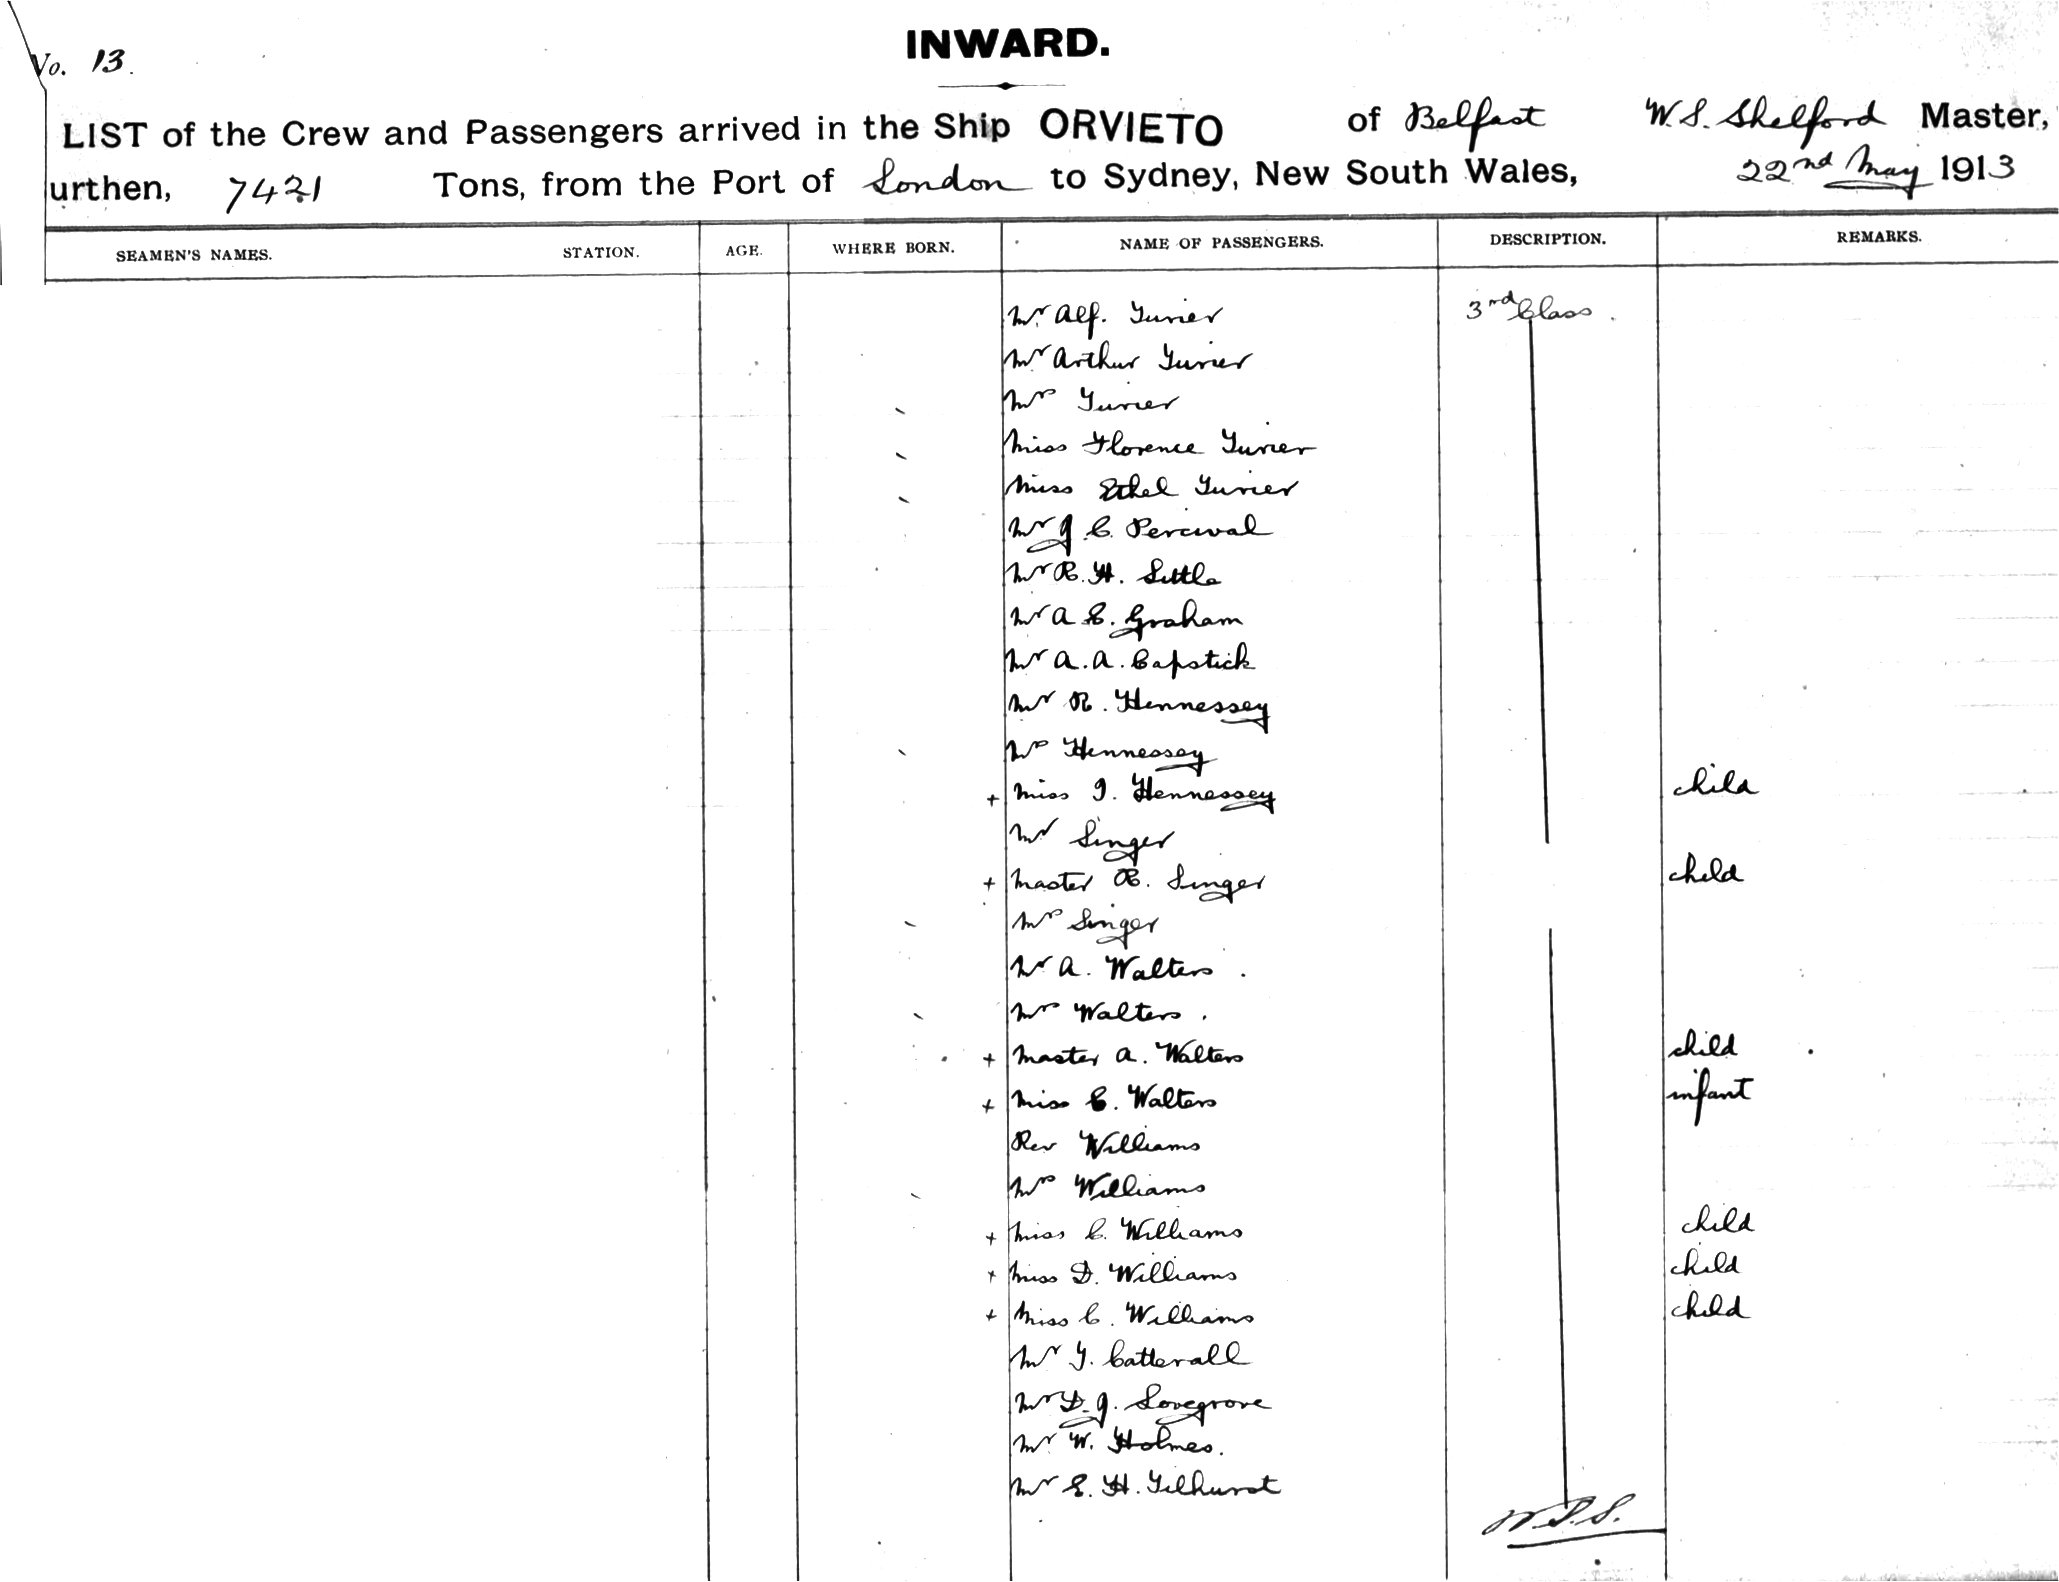 No. 13.
INWARD.
LIST of the Crew and Passengers arrived in the Ship ORVIETO of Belfast W. S. Shelford Master,
urthen, 7421 Tons, from the Port of London to Sydney, New South Wales, 22nd May 1913
SEAMEN'S NAMES. STATION. AGE. WHERE BORN. NAME OF PASSENGERS. DESCRIPTION. REMARKS.
Mr Alf. Turier 3rd Class.
Mr Arthur Turier
Mrs Turier
Miss Florence Turier
Miss Ethel Turier
Mr J C. Percival
Mr R. H. Little
Mr A E. Graham
Mr A. A. Capstick
Mr R. Hennessey
Mrs Hennessey
+ Miss I. Hennessey child
Mr Singer
+ Master R. Singer child
Mrs Singer
Mr A. Walters.
Mrs Walters.
+ Master A. Walters child
+ Miss C. Walters infant
Rev Williams
Mrs Williams
+ Miss C. Williams child
+ Miss D. Williams child
+ Miss C. Williams child
Mr T. Catterall
Mr D. J. Lovegrove
Mr W. Holmes.
Mr E. H. Tilhurst
W.S.S.